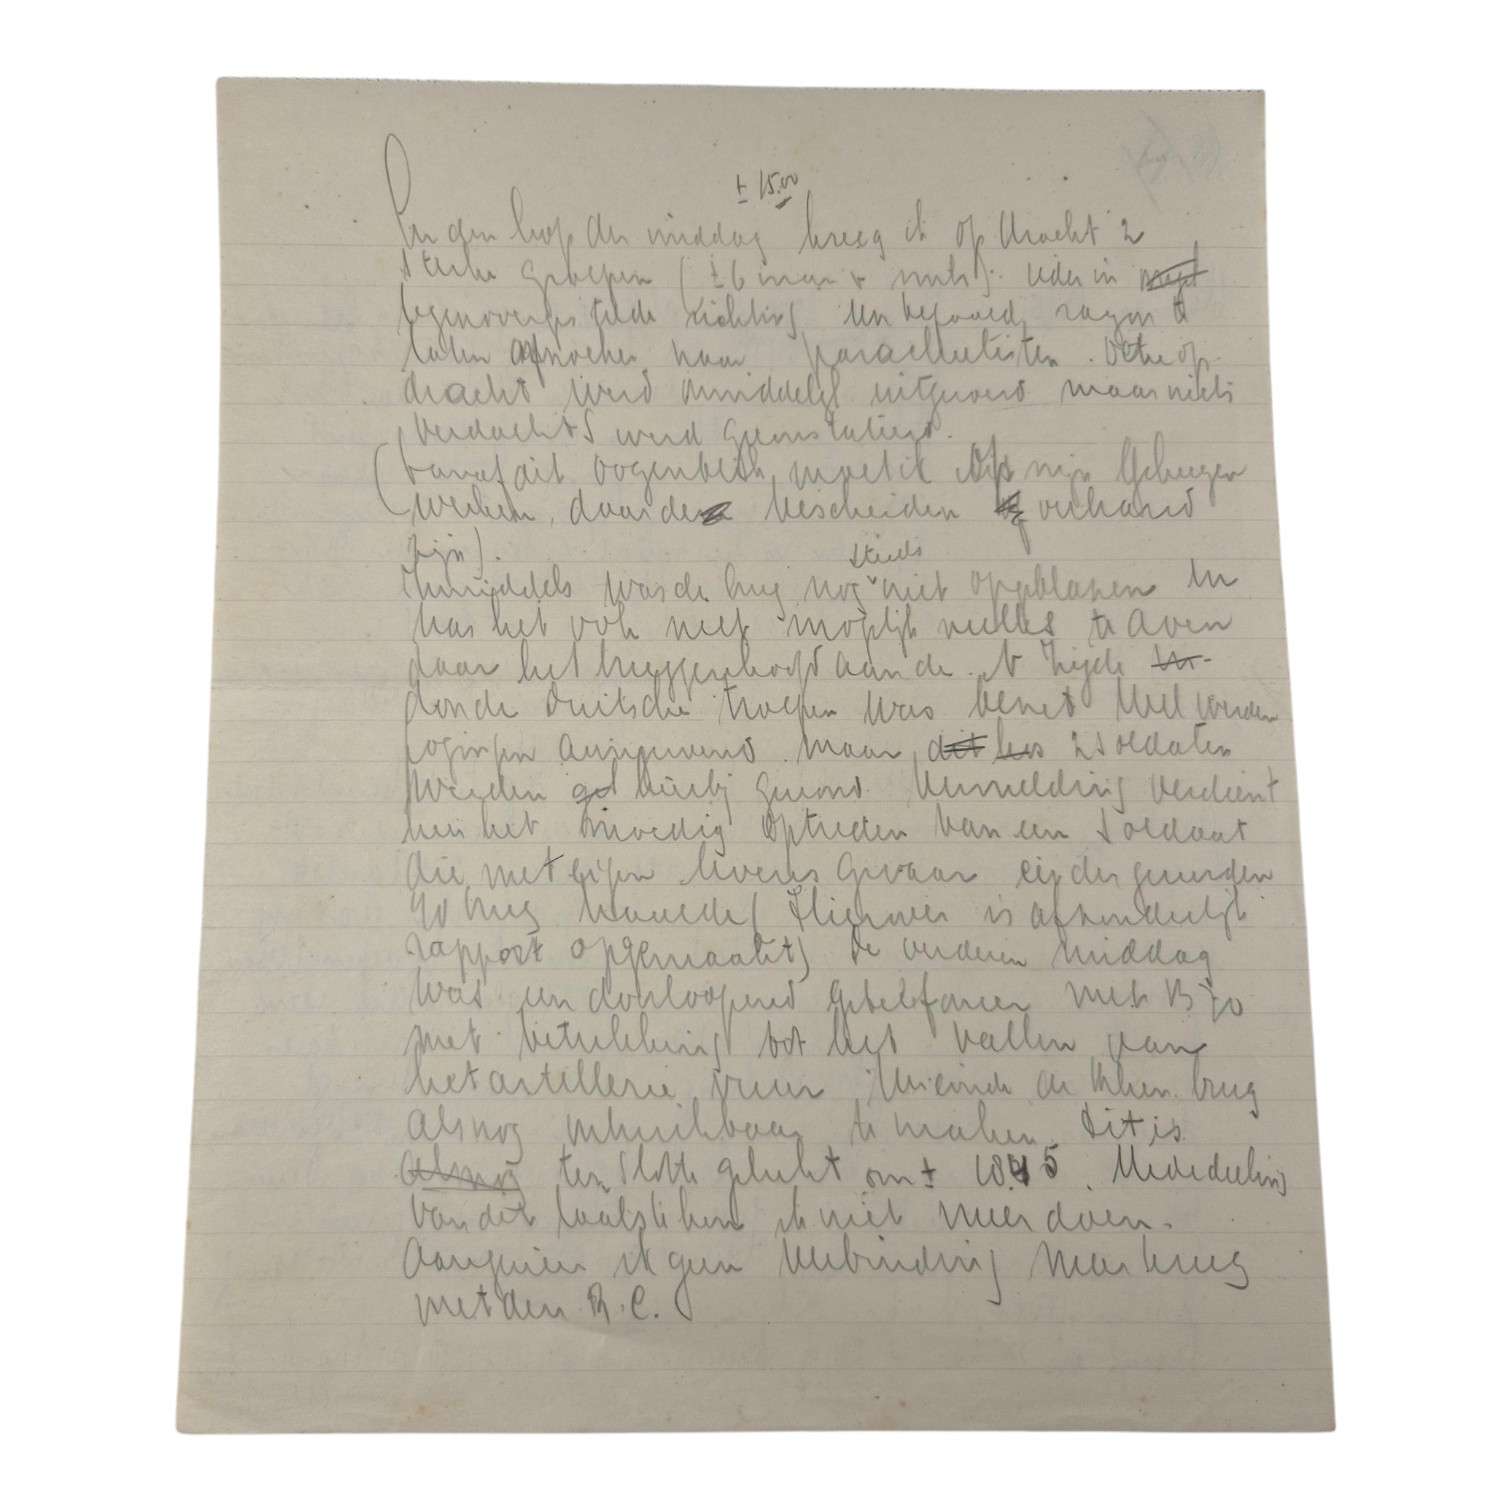 ± 15.00
In den loop der middag kreeg ik opdracht 2
sterke groepen (± 6 man + mitr). ieder in
tegenovergestelde richting
laten afzoeken naar parachutisten. Deze op-
dracht werd onmiddelijk uitgevoerd maar niets
verdachts werd geconstateerd.
(vanaf dit oogenblik moet ik op mijn geheugen
werken, daar de bescheiden verbrand
zijn).
steeds
Inmiddels was de brug nog niet opgeblazen en
was het ook niet mogelijk zulks te doen
daar het bruggenhoofd aan de zijde
door de Duitsche troepen was bezet. Wel werden
pogingen aangewend maar dit 2 soldaten
werden hierbij gewond. Vermelding verdient
hier het moedig optreden van een soldaat
die met eigen levensgevaar
(Hierover is afzonderlijk
rapport opgemaakt) De verderen middag
was een doorloopend getelefoneer met
met betrekking tot het vallen van
het artillerie vuur teneinde de brug
alsnog onbruikbaar te maken. Dit is
alsnog ten slotte gelukt om ± 18.45. Mededeeling
van dit laatste kon ik niet meer doen.
Aangezien ik geen verbinding meer kreeg
met den B.C.